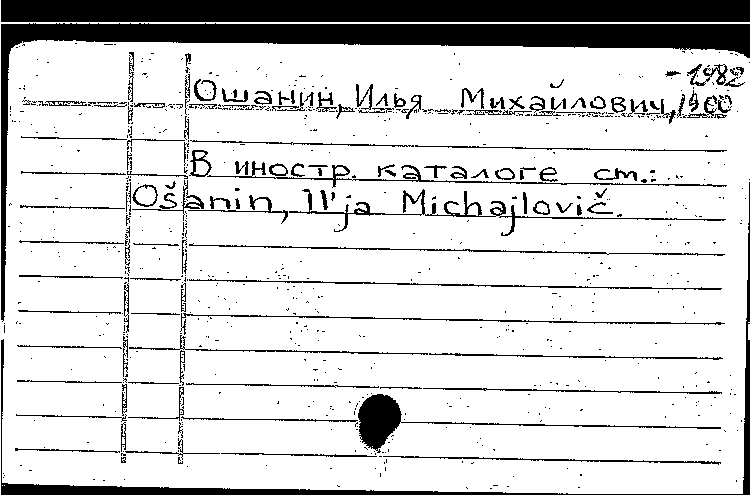 Ошанин, Илья Михайлович, 1900
- 1982
В иностр. каталоге см.:
Ošanin, Il'ja Michajlovič.